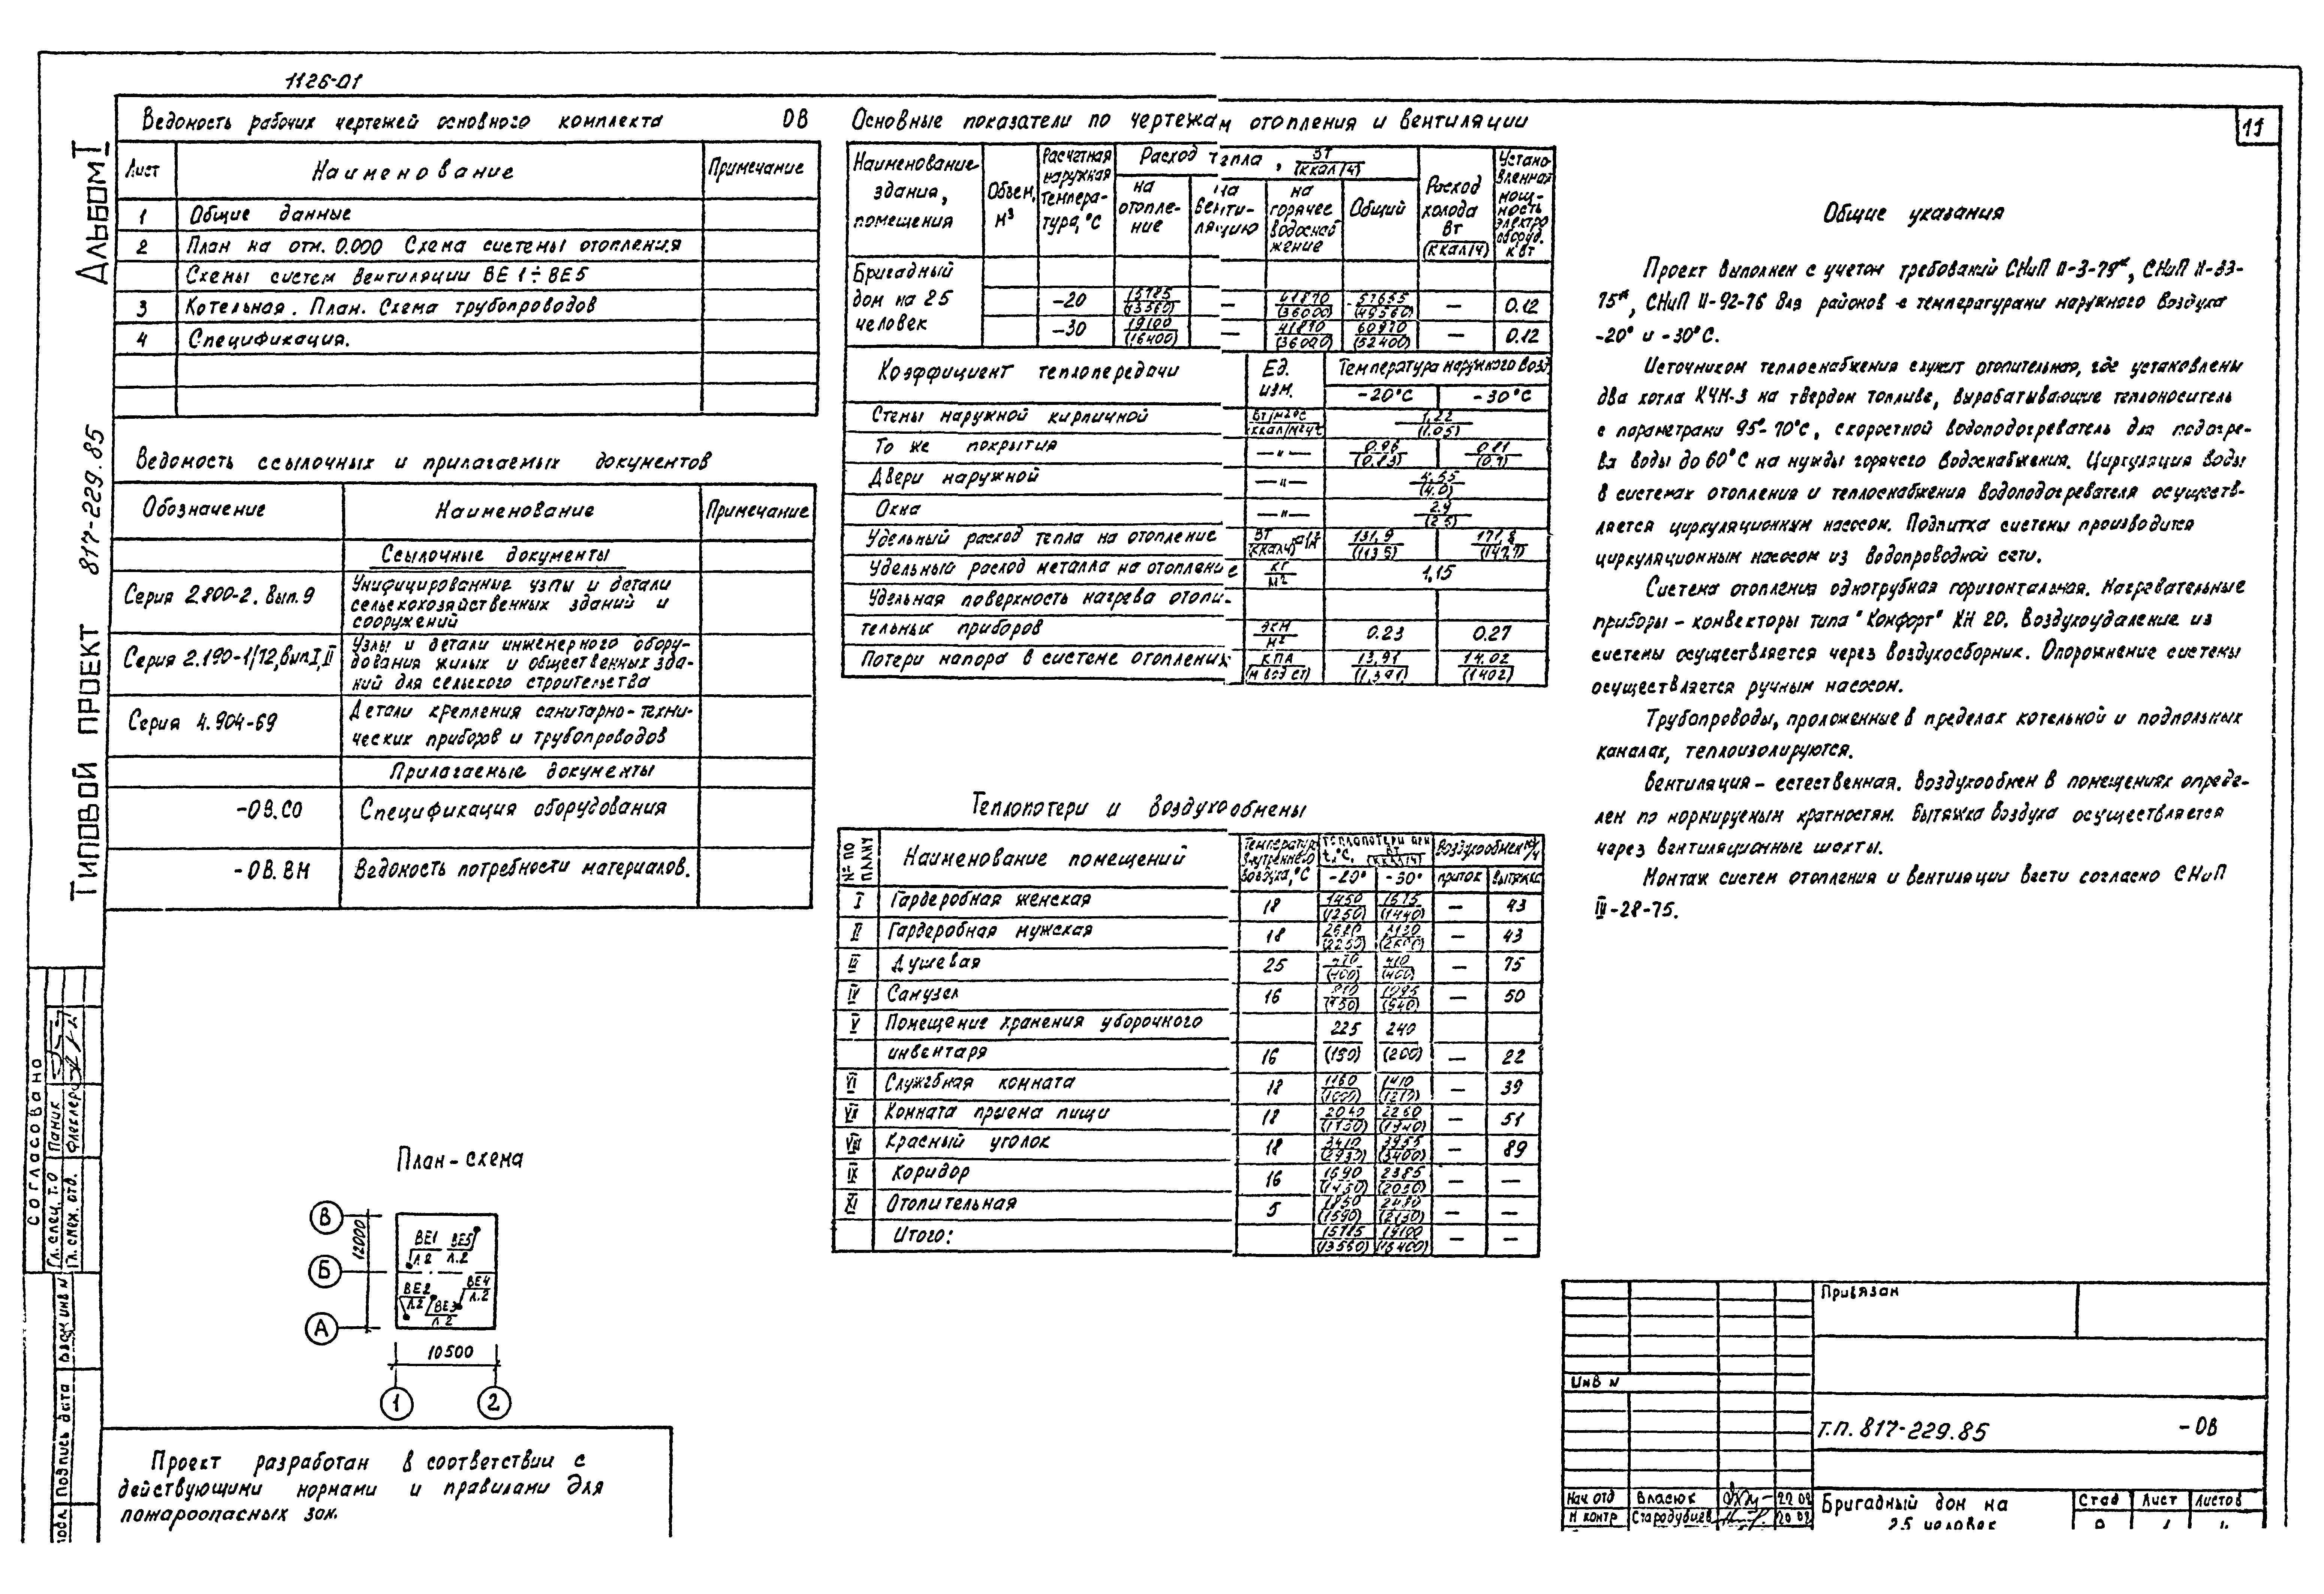 1126-01
11
Альбом I
Типовой проект 817-229.85
Ведомость рабочих чертежей основного комплекта ОВ
Лист Наименование Примечание
1 Общие данные
2 План на отм. 0.000 Схема системы отопления
Схемы систем вентиляции ВЕ1÷ВЕ5
3 Котельная. План. Схема трубопроводов
4 Спецификация.
Ведомость ссылочных и прилагаемых документов
Обозначение Наименование Примечание
Ссылочные документы
Серия 2.800-2. Вып. 9 Унифицированные узлы и детали
сельскохозяйственных зданий и
сооружений
Серия 2.190-1/72, вып. I, II Узлы и детали инженерного обору-
дования жилых и общественных зда-
ний для сельского строительства
Серия 4.904-69 Детали крепления санитарно-техни-
ческих приборов и трубопроводов
Прилагаемые документы
-ОВ.СО Спецификация оборудования
-ОВ.ВМ Ведомость потребности материалов.
План-схема
В
Б
А
12000
ВЕ1 ВЕ5
Л.2 Л.2
ВЕ2 ВЕ3 ВЕ4
Л.2 Л.2 Л.2
10500
1 2
Проект разработан в соответствии с
действующими нормами и правилами для
пожароопасных зон.
Основные показатели по чертежам отопления и вентиляции
Наименование здания, помещения
Объем, м³
Расчетная наружная температура, °С
Расход тепла, Вт (ккал/ч)
на отопление
на вентиляцию
на горячее водоснабжение
Общий
Расход холода Вт (ккал/ч)
Установленная мощность электрооборуд. кВт
Бригадный дом на 25 человек
-20 15785 (13560) — 41870 (36000) 57655 (49560) — 0.12
-30 19100 (16400) — 41870 (36000) 60970 (52400) — 0.12
Коэффициент теплопередачи Ед. изм. Температура наружного возд.
-20°С -30°С
Стены наружной кирпичной Вт/м²°С (ккал/м²ч°С) 1,22 (1.05)
То же покрытия —"— 0.96 (0.83) 0.81 (0.7)
Двери наружной —"— 4,65 (4.0)
Окна —"— 2.9 (2.5)
Удельный расход тепла на отопление 131,9 (113.5)
Удельный расход металла на отопление кг/м² 1,15
Удельная поверхность нагрева отопи-
тельных приборов экм/м² 0.23 0.27
Потери напора в системе отопления кПа (м вод ст) 13,91 (1,391) 14.02 (1402)
Теплопотери и воздухообмены
№ по плану
Наименование помещений
Температура внутреннего воздуха, °С
Теплопотери при t, °С, Вт (ккал/ч)
Воздухообмен м³/ч
-20° -30° приток вытяжка
I Гардеробная женская 18 1450 (1250) 1675 (1440) — 43
II Гардеробная мужская 18 — 43
III Душевая 25 — 75
IV Санузел 16 — 50
V Помещение хранения уборочного 225 240
инвентаря 16 (190) (200) — 22
VI Служебная комната 18 1160 (1000) 1410 (1210) — 39
VII Комната приема пищи 18 2040 2260 — 51
VIII Красный уголок 18 3410 (2930) 3955 (3400) — 89
IX Коридор 16 1690 (1450) 2385 (2050) — —
XI Отопительная 5 1850 (1590) 2480 (2130) — —
Итого: 15785 (13560) 19100 (16400) — —
Общие указания
Проект выполнен с учетом требований СНиП II-3-79*, СНиП II-33-
75*, СНиП II-92-76 для районов с температурами наружного воздуха
-20° и -30°С.
Источником теплоснабжения служит отопительная, где установлены
два котла КЧМ-3 на твердом топливе, вырабатывающие теплоноситель
с параметрами 95°-70°С, скоростной водоподогреватель для подогре-
ва воды до 60°С на нужды горячего водоснабжения. Циркуляция воды
в системах отопления и теплоснабжения водоподогревателя осуществ-
ляется циркуляционным насосом. Подпитка системы производится
циркуляционным насосом из водопроводной сети.
Система отопления однотрубная горизонтальная. Нагревательные
приборы - конвекторы типа "Комфорт" КН 20. Воздухоудаление из
системы осуществляется через воздухосборник. Опорожнение системы
осуществляется ручным насосом.
Трубопроводы, проложенные в пределах котельной и подпольных
каналах, теплоизолируются.
Вентиляция - естественная. Воздухообмен в помещениях опреде-
лен по нормируемым кратностям. Вытяжка воздуха осуществляется
через вентиляционные шахты.
Монтаж систем отопления и вентиляции вести согласно СНиП
III-28-75.
Согласовано
Гл. спец. т.о Паник
Гл. спец. отд. Флеклер
Взам инв N
Подпись дата
подл.
Привязан
Инв N
Т.П. 817-229.85 -ОВ
Нач отд Власюк 22 02
Н контр Стародубцев 20 02
Бригадный дом на
25 человек
Стад Лист Листов